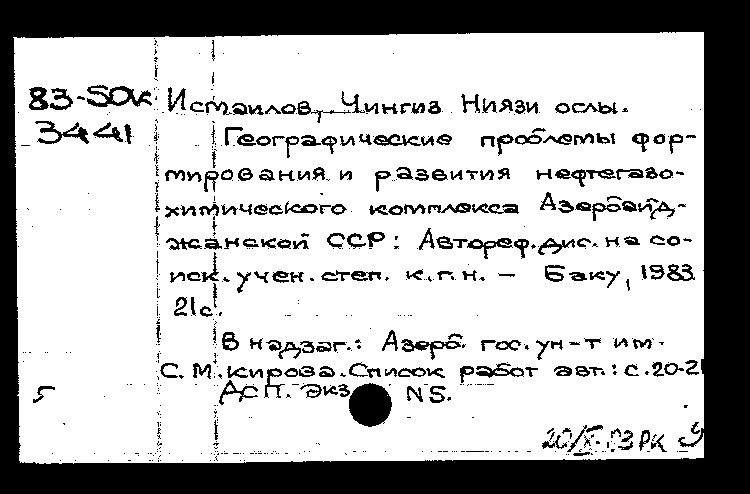 83-5ОК Исмаилов, Чингиз Ниязи оглы.
3441
Географические проблемы фор-
мирования и развития нефтегазо-
химического комплекса Азербайд-
жанской ССР: Автореф. дис. на со-
иск. учен. степ. к.г.н. – Баку, 1983
21с.
В надзаг.: Азерб. гос. ун-т им.
С. М. Кирова. Список работ авт.: с. 20-21
5 ДСП. Экз NS.
РК